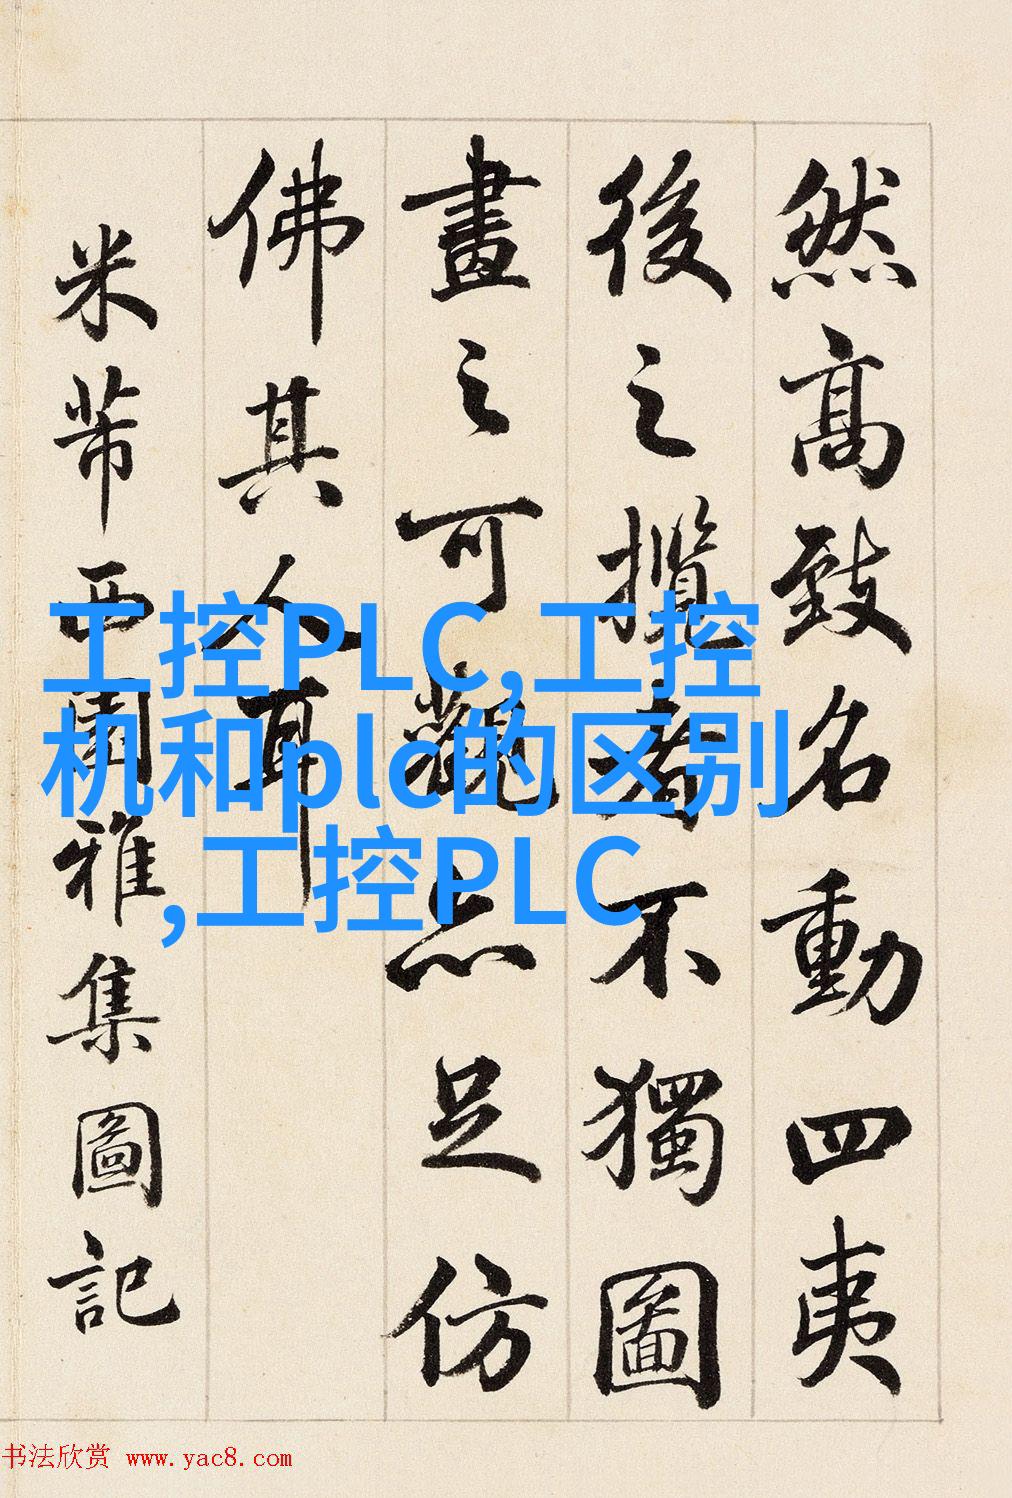 然高致名動四夷
後之攬者不獨圖
畫之可觀亦足仿
佛其人耳
米芾西園雅集圖記
工控PLC,工控
机和plc的区别
,工控PLC
书法欣赏 www.yac8.com